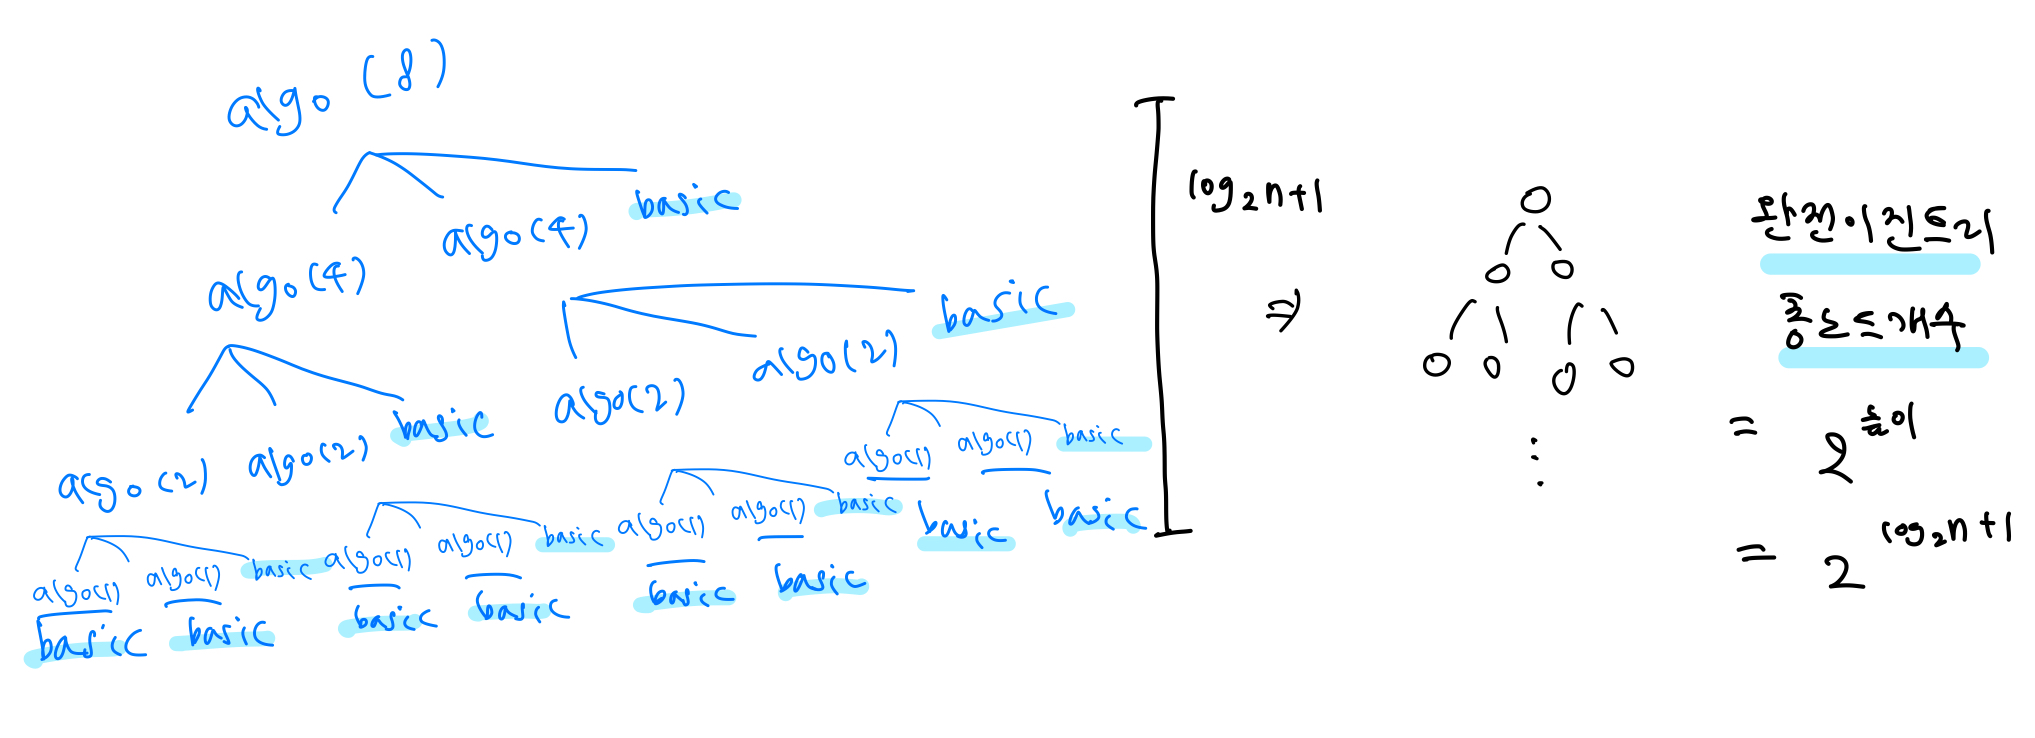 algo (8)
algo(4) algo(4) basic
algo(2) algo(2) basic algo(2) algo(2) basic
algo(1) algo(1) basic algo(1) algo(1) basic algo(1) algo(1) basic algo(1) algo(1) basic
basic basic basic basic basic basic basic basic
log₂n+1
⇒
완전이진트리
총노드개수
= 2^높이
= 2^log₂n+1